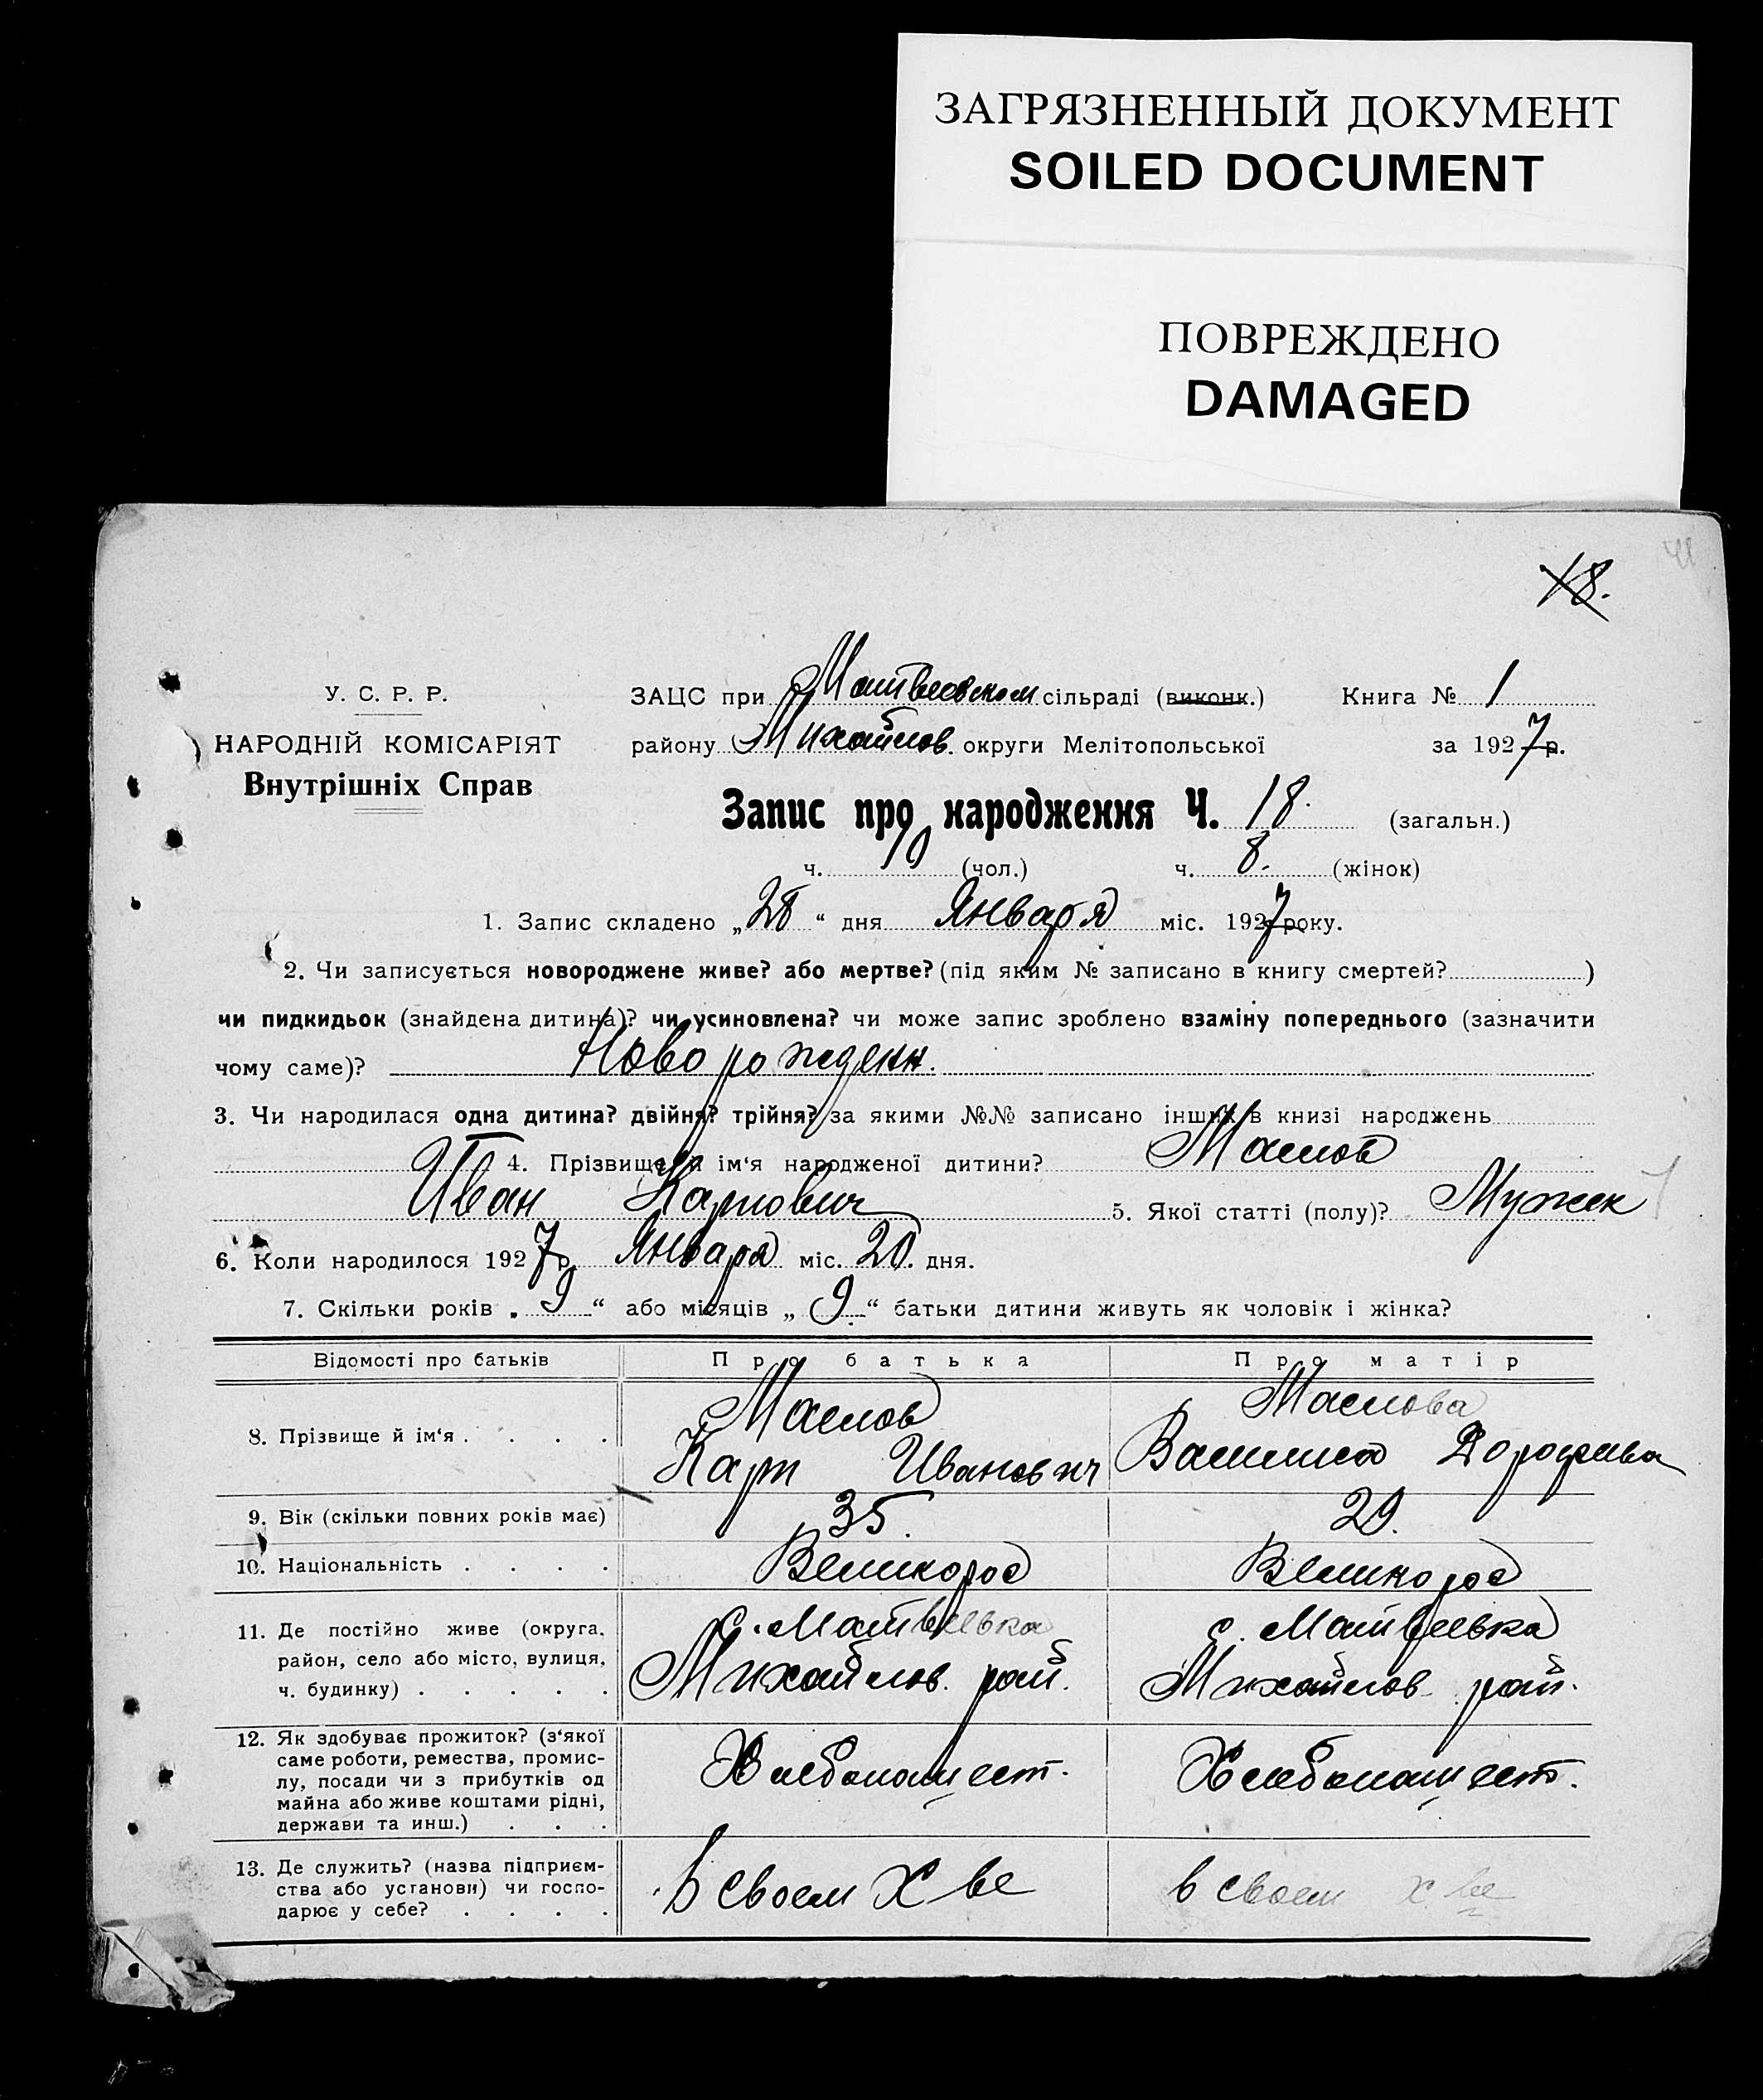 ЗАГРЯЗНЕННЫЙ ДОКУМЕНТ
SOILED DOCUMENT
ПОВРЕЖДЕНО
DAMAGED
18.
У. С. Р. Р.
НАРОДНІЙ КОМІСАРІЯТ
Внутрішніх Справ
ЗАЦС при Матвеевском сільраді (виконк.) Книга № 1
району Михайлов. округи Мелітопольської за 1927 р.
Запис про народження Ч. 18. (загальн.)
ч. 10 (чол.) ч. 8. (жінок)
1. Запис складено „28“ дня Января міс. 1927 року.
2. Чи записується новороджене живе? або мертве? (під яким № записано в книгу смертей? )
чи пидкидьок (знайдена дитина)? чи усиновлена? чи може запис зроблено взаміну попереднього (зазначити
чому саме)? Новорожденн.
3. Чи народилася одна дитина? двійня? трійня? за якими №№ записано інших в книзі народжень
4. Прізвище й ім‘я народженої дитини? Маслов
Иван Карпович 5. Якої статті (полу)? Мужск
6. Коли народилося 1927 р. Января міс. 20. дня.
7. Скільки років „ 9 “ або місяців „ 9. “ батьки дитини живуть як чоловік і жінка?
Відомості про батьків Про батька Про матір
8. Прізвище й ім‘я . . . . Маслов Маслова
Карп Иванович Василиса Дорофеева
9. Вік (скільки повних років має) 35. 29.
10. Національність . . . . Великорос Великорос
11. Де постійно живе (округа, район, село або місто, вулиця, ч. будинку) . . . . .
с. Матвеевка с. Матвеевка
Михайлов. рай. Михайлов. рай.
12. Як здобуває прожиток? (з‘якої
саме роботи, ремества, промис-
лу, посади чи з прибутків од
майна або живе коштами рідні,
держави та инш.) . . .
Хлебопашест. Хлебопашест.
13. Де служить? (назва підприєм-
ства або установи) чи госпо-
дарює у себе? . . . .
в своем х ве в своем х ве